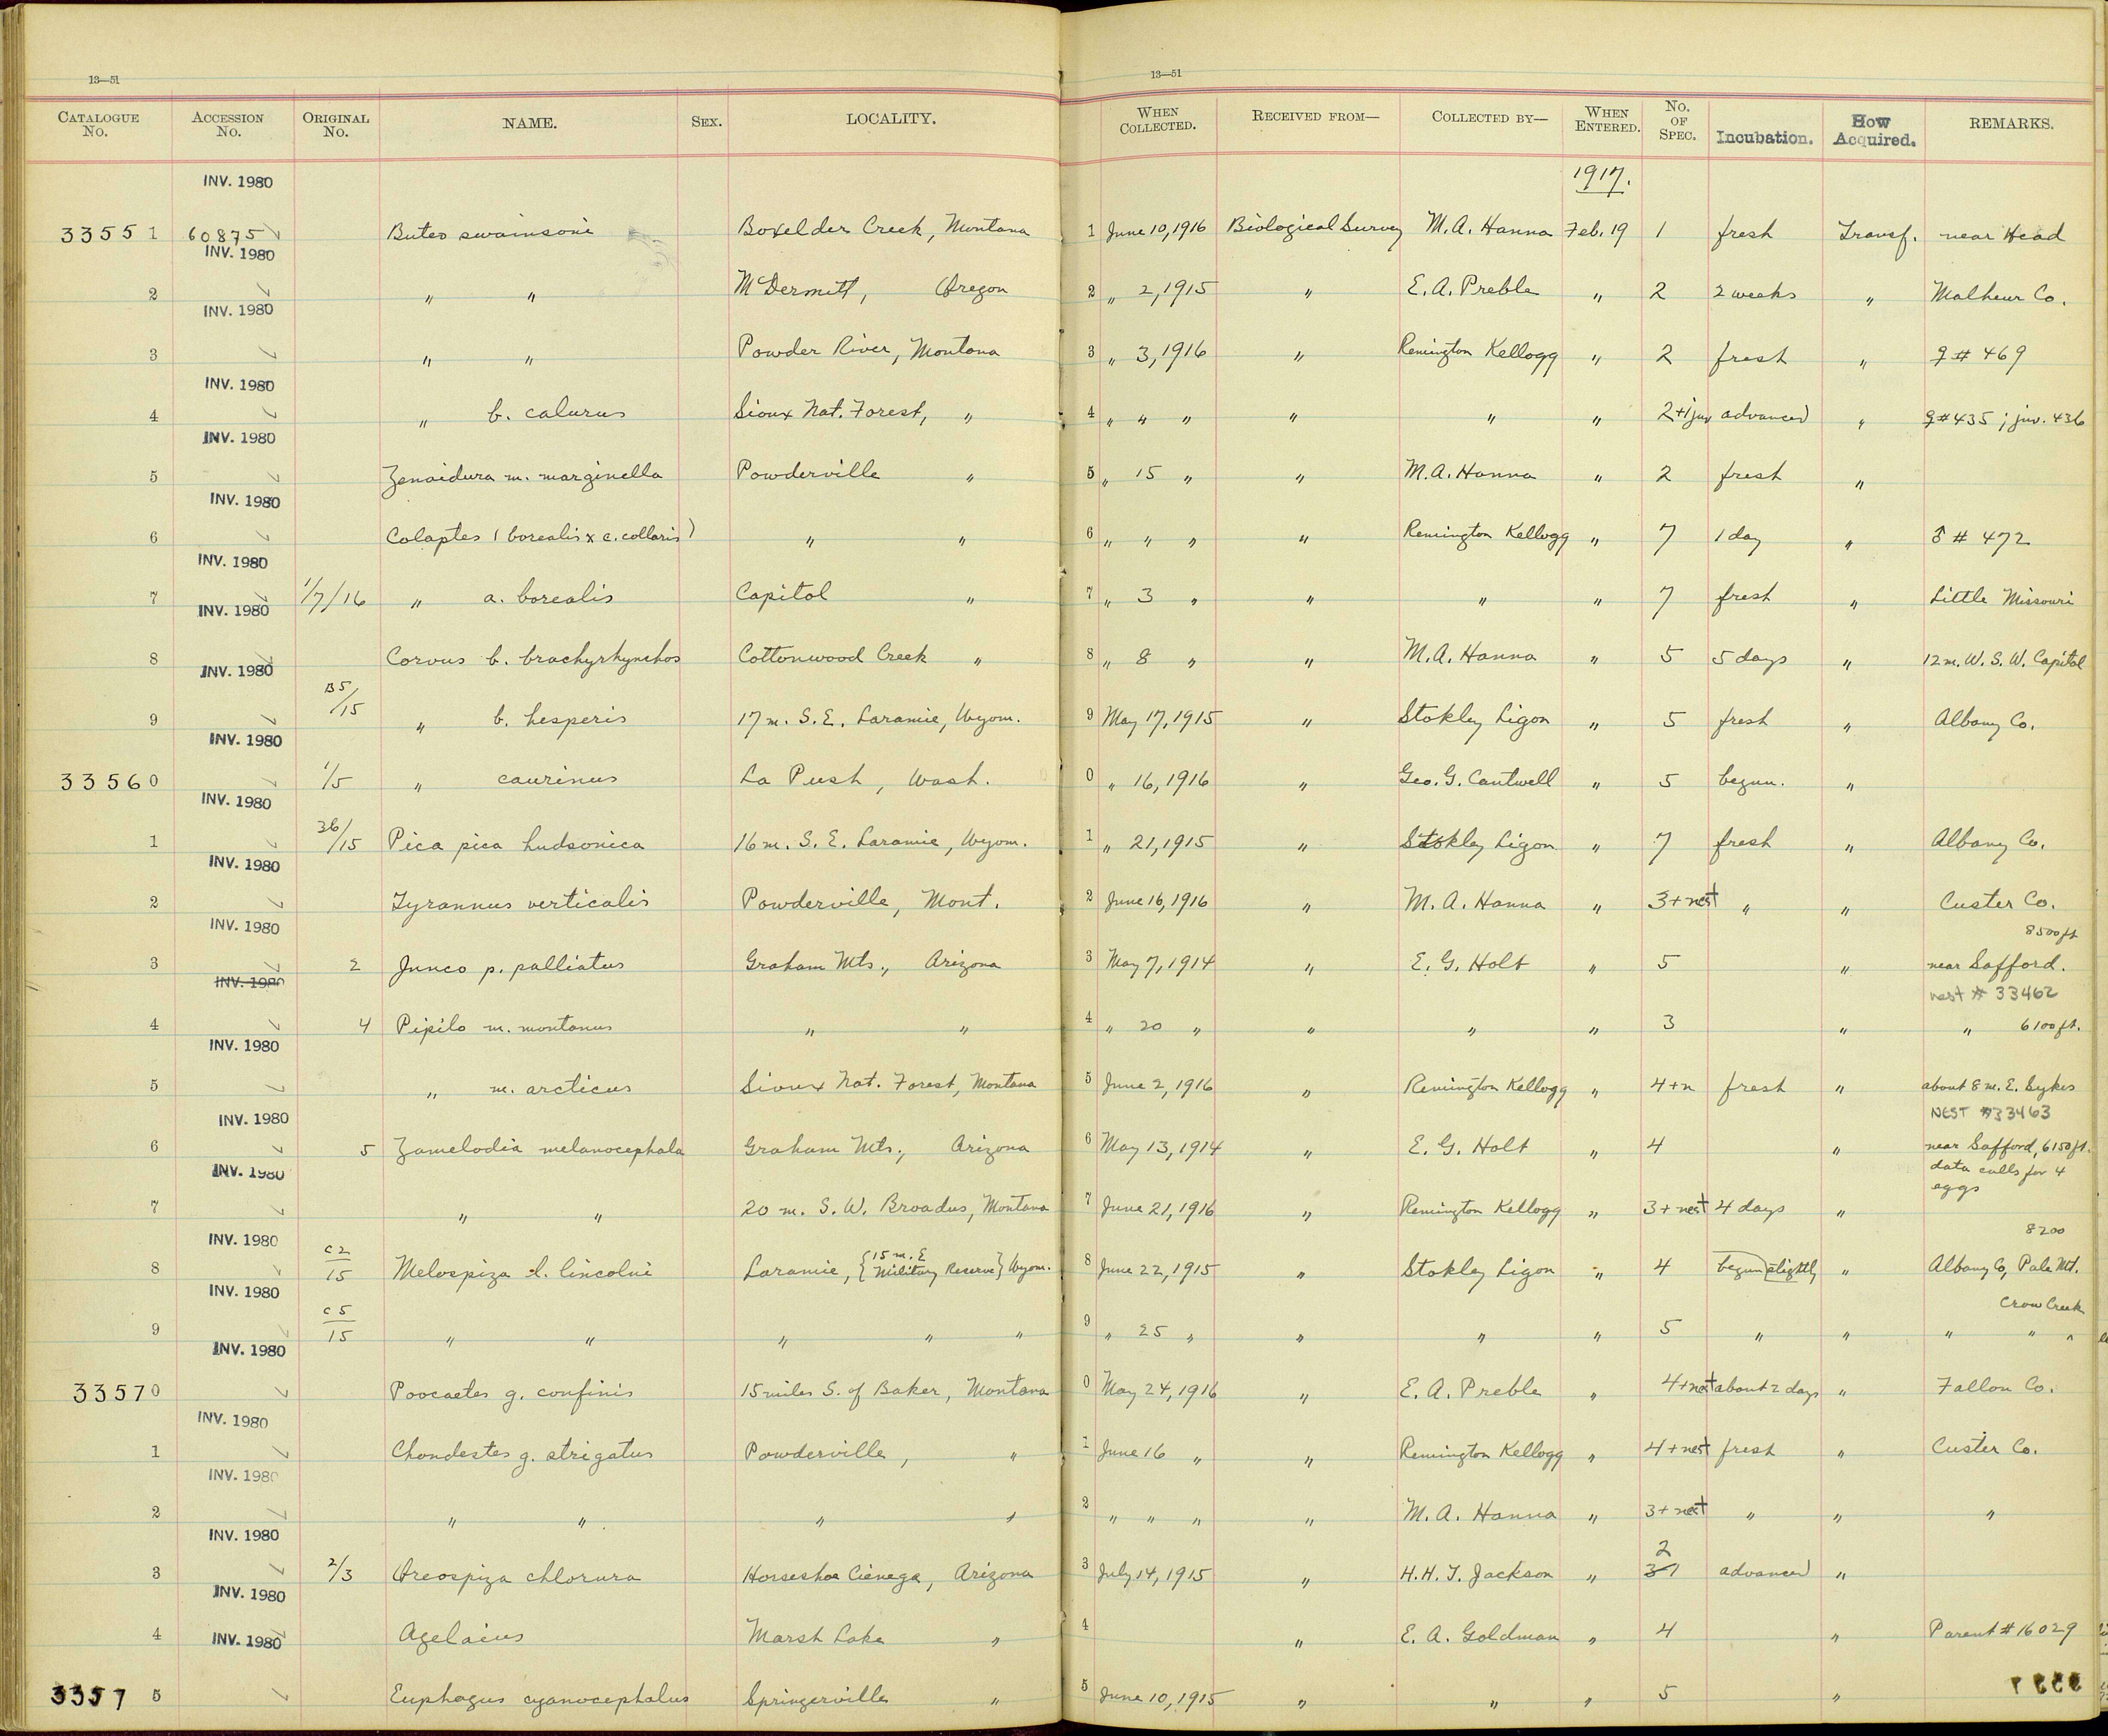 13—51 13—51
CATALOGUE No. ACCESSION No. ORIGINAL No. NAME. SEX. LOCALITY. WHEN COLLECTED. RECEIVED FROM— COLLECTED BY— WHEN ENTERED. No. OF SPEC. Incubation. How Acquired. REMARKS.
INV. 1980 1917.
33551 60875 Buteo swainsoni Boxelder Creek, Montana 1 June 10, 1916 Biological Survey M. A. Hanna Feb. 19 1 fresh Transf. near Head
INV. 1980
2 " " McDermitt, Oregon 2 " 2, 1915 " E. A. Preble " 2 2 weeks " Malheur Co.
INV. 1980
3 " " Powder River, Montana 3 " 3, 1916 " Remington Kellogg " 2 fresh " ♀ # 469
INV. 1980
4 " b. calurus Sioux Nat. Forest, " 4 " " " " " " 2+1 juv advanced " ♀ # 435 ; juv. 436
INV. 1980
5 Zenaidura m. marginella Powderville " 5 " 15 " " M. A. Hanna " 2 fresh "
INV. 1980
6 Colaptes (borealis x c. collaris) " " 6 " " " " Remington Kellogg " 7 1 day " ♂ # 472
INV. 1980
7 1/7/16 " a. borealis Capitol " 7 " 3 " " " " 7 fresh " Little Missouri
INV. 1980
8 Corvus b. brachyrhynchos Cottonwood Creek " 8 " 8 " " M. A. Hanna " 5 5 days " 12 m. W. S. W. Capitol
INV. 1980
9 B5/15 " b. hesperis 17 m. S. E. Laramie, Wyom. 9 May 17, 1915 " Stokley Ligon " 5 fresh " Albany Co.
INV. 1980
33560 1/5 " caurinus La Push, Wash. 0 " 16, 1916 " Geo. G. Cantwell " 5 begun. "
INV. 1980
1 36/15 Pica pica hudsonica 16 m. S. E. Laramie, Wyom. 1 " 21, 1915 " Stokley Ligon " 7 fresh " Albany Co.
INV. 1980
2 Tyrannus verticalis Powderville, Mont. 2 June 16, 1916 " M. A. Hanna " 3 + nest " " Custer Co.
INV. 1980 8500 ft
3 2 Junco p. palliatus Graham Mts., Arizona 3 May 7, 1914 " E. G. Holt " 5 " near Safford.
INV. 1980 nest # 33462
4 4 Pipilo m. montanus " " 4 " 20 " " " " 3 " " 6100 ft.
INV. 1980
5 " m. arcticus Sioux Nat. Forest, Montana 5 June 2, 1916 " Remington Kellogg " 4 + n fresh " about 8 m. E. Sykes
INV. 1980 NEST #33463
6 5 Zamelodia melanocephala Graham Mts., Arizona 6 May 13, 1914 " E. G. Holt " 4 " near Safford, 6150 ft.
INV. 1980 data calls for 4 eggs
7 " " 20 m. S. W. Broadus, Montana 7 June 21, 1916 " Remington Kellogg " 3 + nest 4 days "
INV. 1980 8200
8 C2/15 Melospiza l. lincolni Laramie, {15 m. E Military Reserve} Wyom. 8 June 22, 1915 " Stokley Ligon " 4 begun slightly " Albany Co, Pole Mt.
INV. 1980 Crow Creek
9 C5/15 " " " " " 9 " 25 " " " " 5 " " " " "
INV. 1980
33570 Pooecetes g. confinis 15 miles S. of Baker, Montana 0 May 24, 1916 " E. A. Preble " 4 + nest about 2 days " Fallon Co.
INV. 1980
1 Chondestes g. strigatus Powderville, " 1 June 16 " " Remington Kellogg " 4 + nest fresh " Custer Co.
INV. 1980
2 " " " " 2 " " " " M. A. Hanna " 3 + nest " " "
INV. 1980 2
3 2/3 Oreospiza chlorura Horseshoe Cienega, Arizona 3 July 14, 1915 " H. H. T. Jackson " advanced "
INV. 1980
4 Agelaius Marsh Lake " 4 " E. A. Goldman " 4 " Parent # 16029
INV. 1980
33575 Euphagus cyanocephalus Springerville " 5 June 10, 1915 " " " 5 "